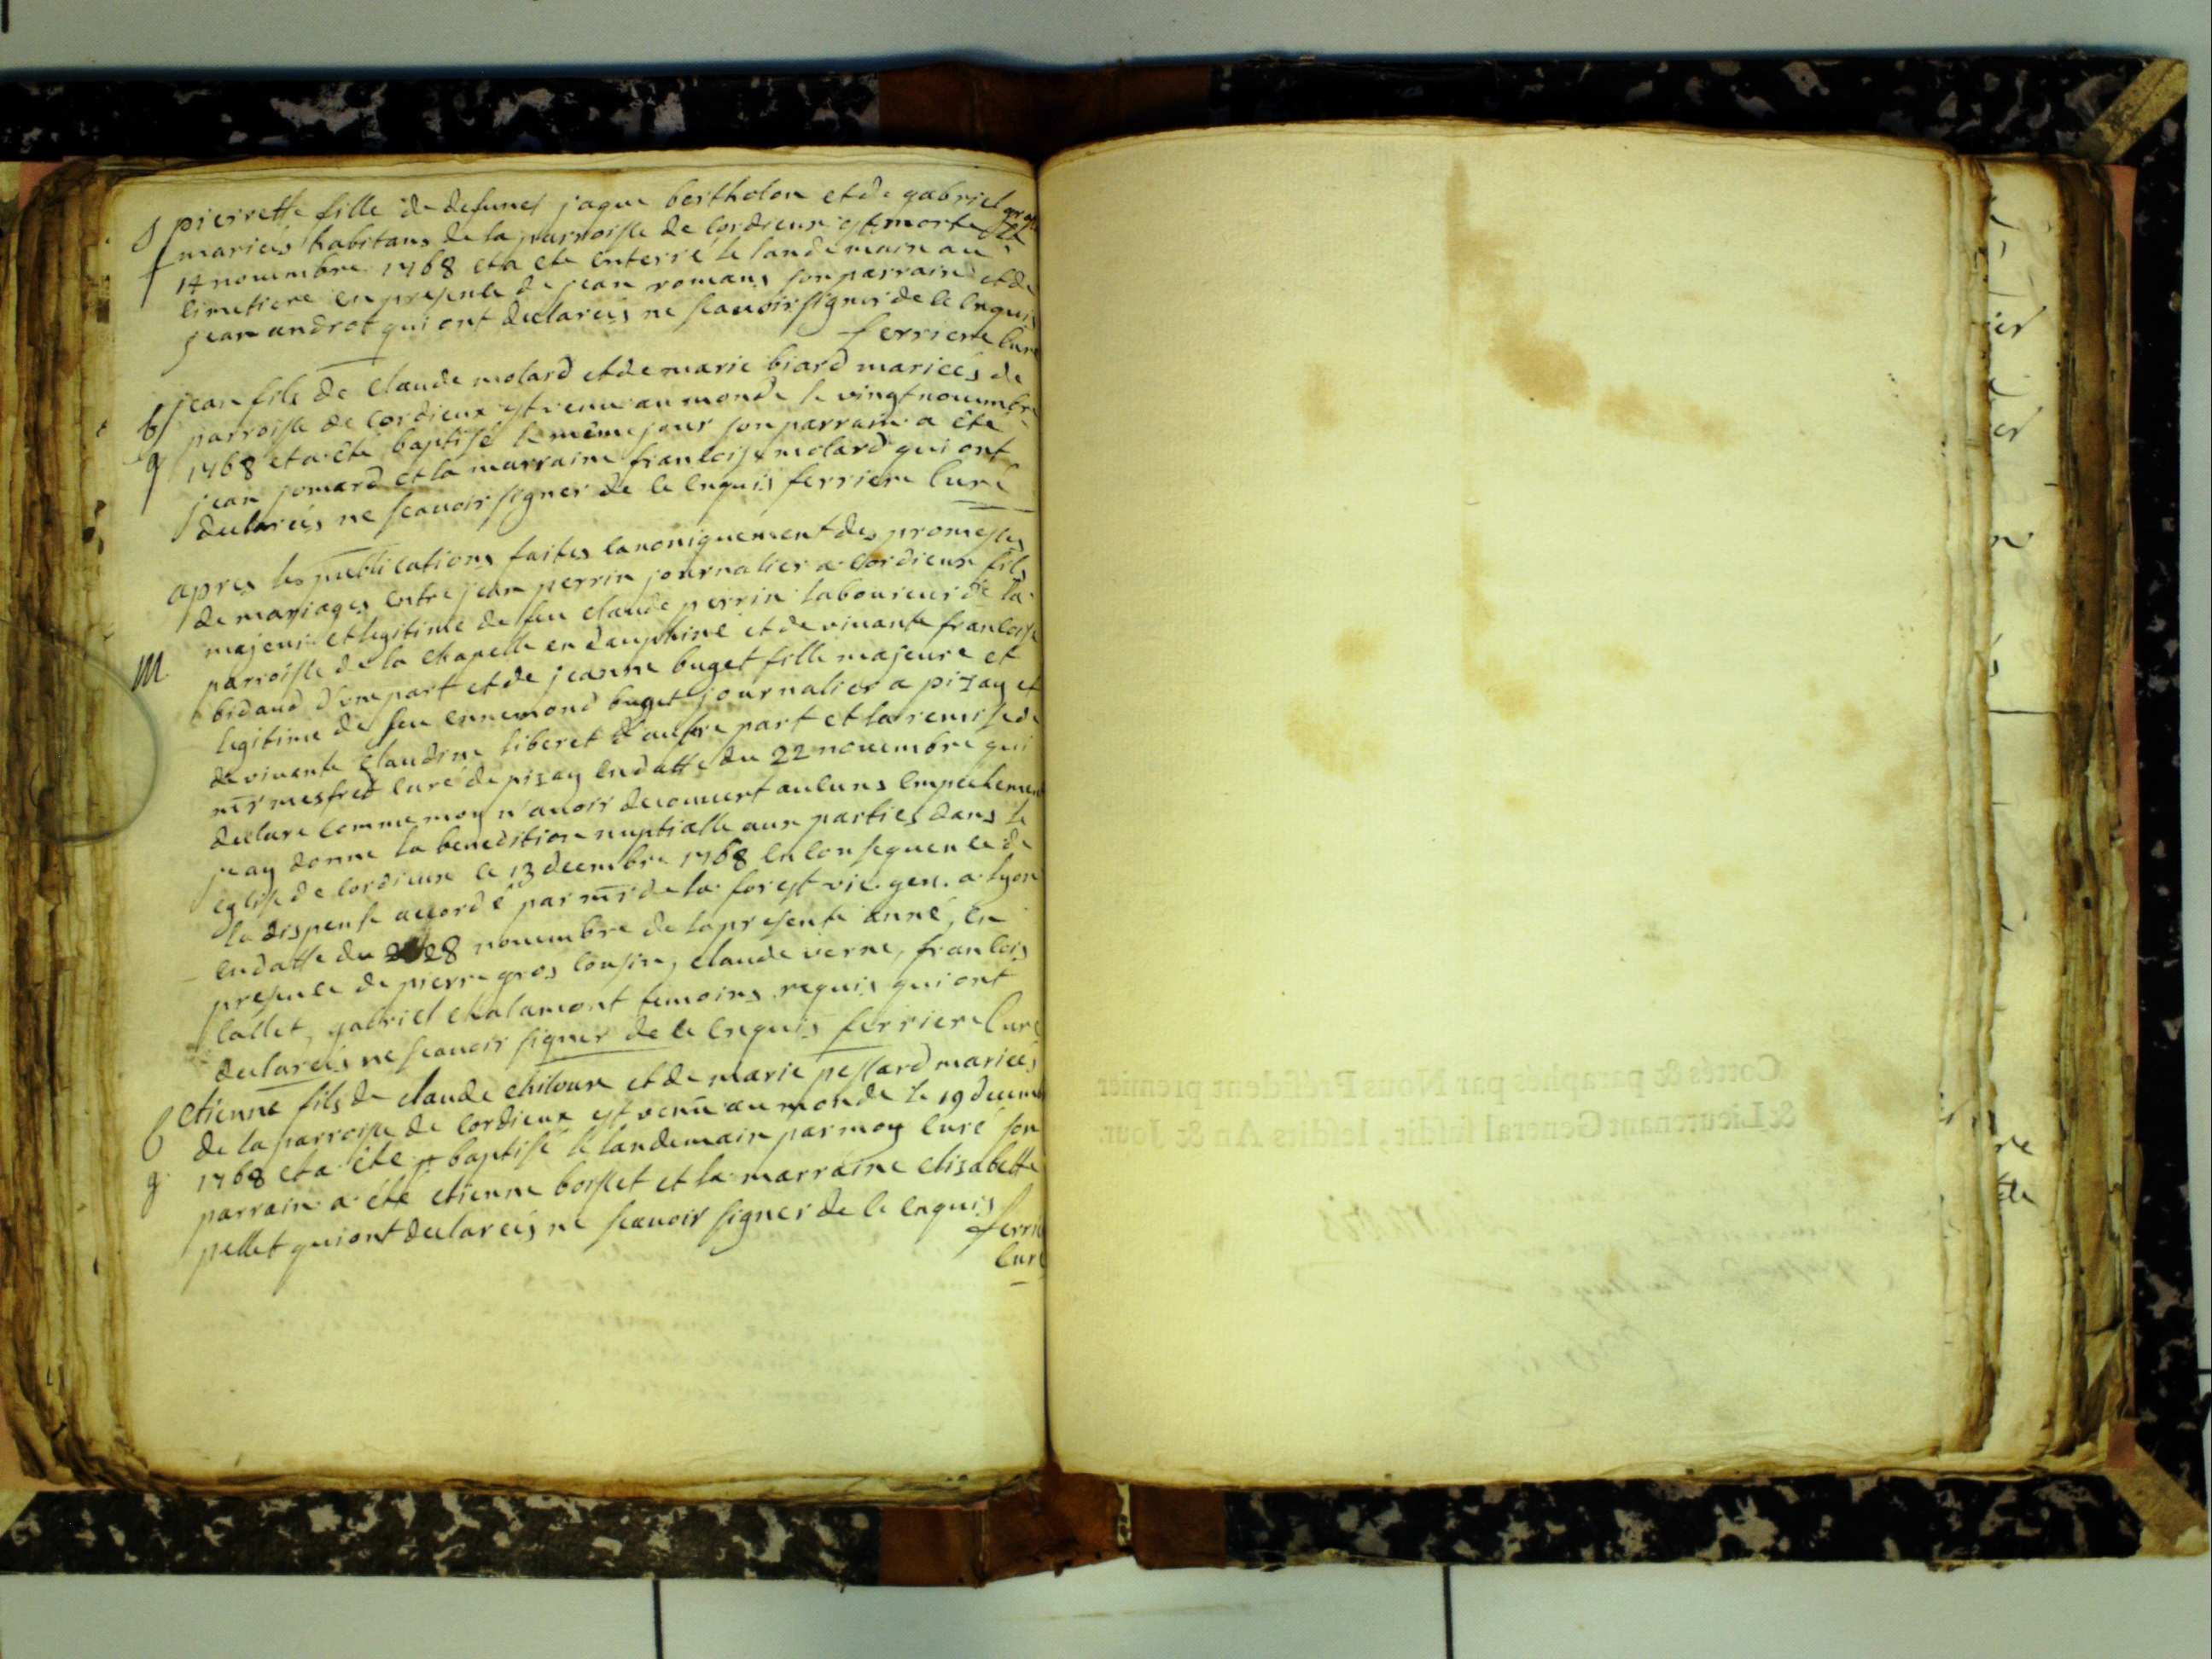 S pierrette fille de defunct jaque bertholon et de gabriel gros
f mariés habitans de la parroisse de Cordieux est morte le
14 nouembre 1768 et a ete enterré le landemain au
cimetiere en presence de jean romans son parrain et de
jean androt qui ont declareés ne scauoir signer de ce enquis
ferriere curé
jean fils de Claude molard et de marie biard mariees de
b parroisse de Cordieux est venu au monde le vingt nouembre
g 1768 et a ete baptisé le même jour son parrain a ête
jean jomard et la marraine francoise molard qui ont
declareés ne scauoir signer de ce enquis ferriere curé
apres les publications faites canoniquement des promesses
de mariages entre jean perrin journalier a Cordieux fils
majeur et legitime de feu claude perrin laboureur de la
M parroisse de la chapelle en dauphiné et de viuante francoise
bidaud d'une part et de jeanne buget fille majeure et
legitime de feu ennemond buget journalier a pizay et
de viuante Claudine liberet d'autre part et la remise de
mr mesfred curé de pizay en datte du 22 nouembre qui
declare comme moy n'auoir decouuert aucuns empechement
jay donne la benedition nuptialle aux parties dans le
eglise de cordieux le 13 decembre 1768 en consequence de
la dispense accordé par mr de la forest vic. gen. a lyon
en datte du 28 nouembre de la presente anné, en
presence de pierre gros cousin, claude verne, francois
collet, gabriel chalamont temoins requis qui ont
declareés ne scauoir signer de ce enquis ferriere Curé
b etienne fils de claude chiloux et de marie pessard mariees
de la parroisse de Cordieux est venu au monde le 19 decem
g 1768 et a ête baptisé le landemain par moy curé son
parrain a été etienne borsset et la marraine elisabette
pellet qui ont declareés ne scauoir signer de ce enquis
ferrie
curé
Cottés & paraphés par Nous Président premier
& Lieutenant General susdit, lesdits An & Jour.